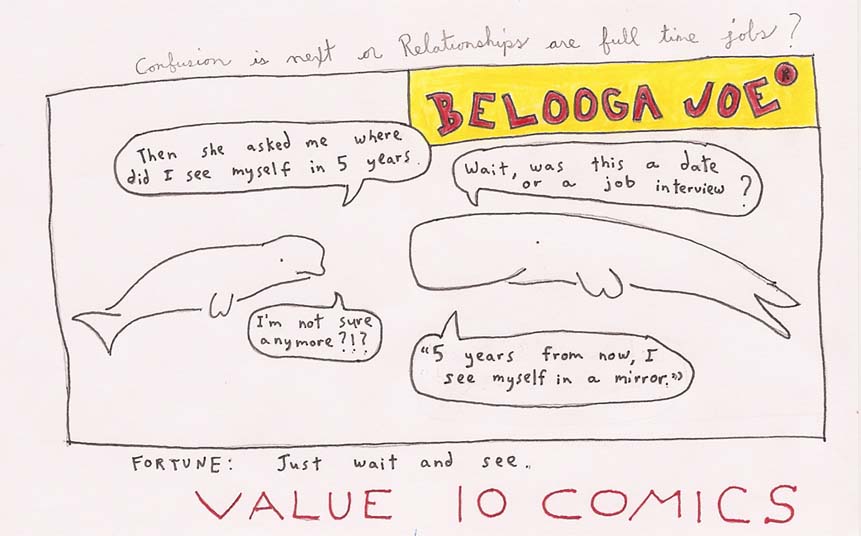 Confusion is next or Relationships are full time jobs?
BELOOGA JOE®
Then she asked me where
did I see myself in 5 years.
Wait, was this a date
or a job interview?
I'm not sure
anymore?!?
"5 years from now, I
see myself in a mirror."
FORTUNE: Just wait and see.
VALUE 10 COMICS